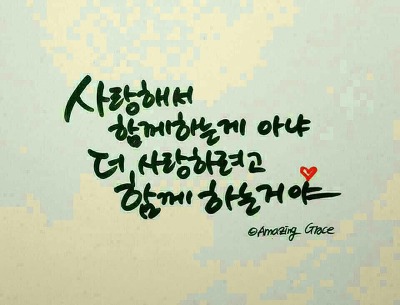 사랑해서
함께하는게 아냐
더 사랑하려고
함께 하는거야
@Amazing Grace